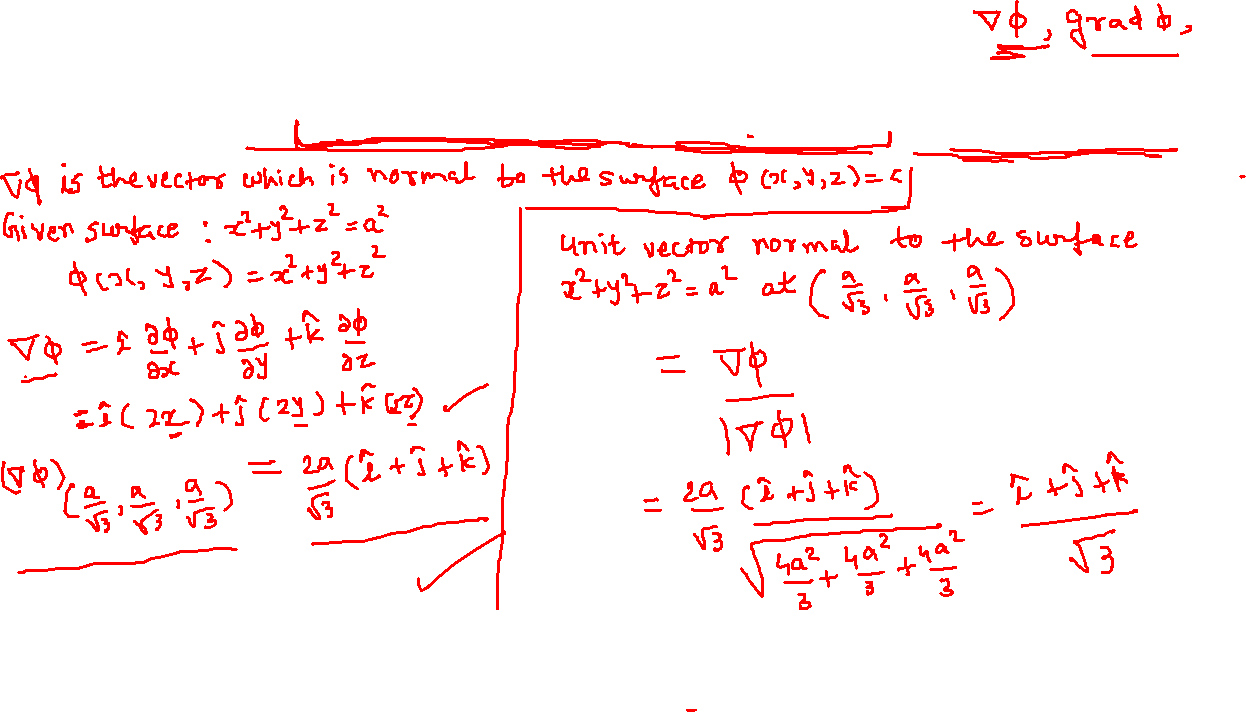 ∇φ, grad φ,
∇φ is the vector which is normal to the surface φ(x,y,z)=c
Given surface : x²+y²+z²=a²
φ(x, y, z) = x²+y²+z²
∇φ = î ∂φ/∂x + ĵ ∂φ/∂y + k̂ ∂φ/∂z
= î(2x)+ĵ(2y)+k̂(2z)
(∇φ)(a/√3, a/√3, a/√3) = 2a/√3 (î+ĵ+k̂)
unit vector normal to the surface
x²+y²+z²=a² at (a/√3, a/√3, a/√3)
= ∇φ/|∇φ|
= 2a/√3 (î+ĵ+k̂)/√(4a²/3+4a²/3+4a²/3) = (î+ĵ+k̂)/√3